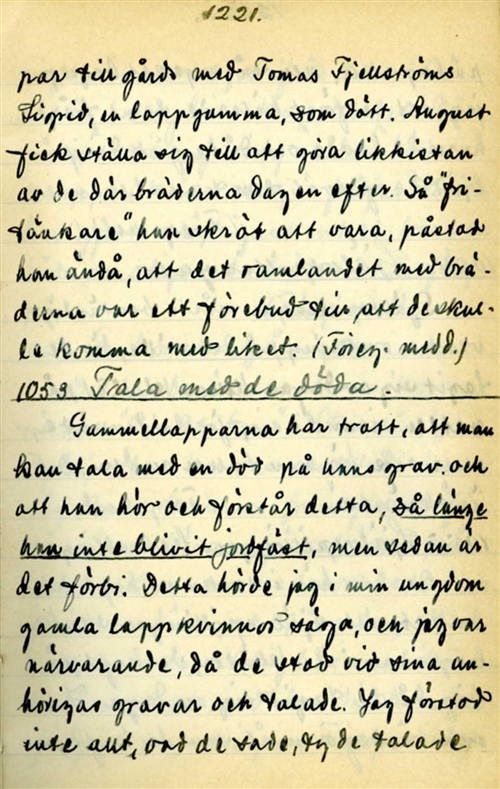 1221.
par till gårds med Tomas Fjellströms
Sigrid, en lappgumma, som dött. August
fick ställa sig till att göra likkistan
av de där bräderna dagen efter. Så "fri-
tänkare" han skröt att vara, påstod
han ändå, att det ramlandet med brä-
derna var ett förebud till, att de skul-
le komma med liket. (Föreg. medd.)
1053 Tala med de döda.
Gammellapparna har trott, att man
kan tala med en död på hans grav, och
att han hör och förstår detta, så länge
han inte blivit jordfäst, men sedan är
det förbi. Detta hörde jag i min ungdom
gamla lappkvinnor säga, och jag var
närvarande, då de stod vid sina an-
hörigas gravar och talade. Jag förstod
inte allt, vad de sade, ty de talade